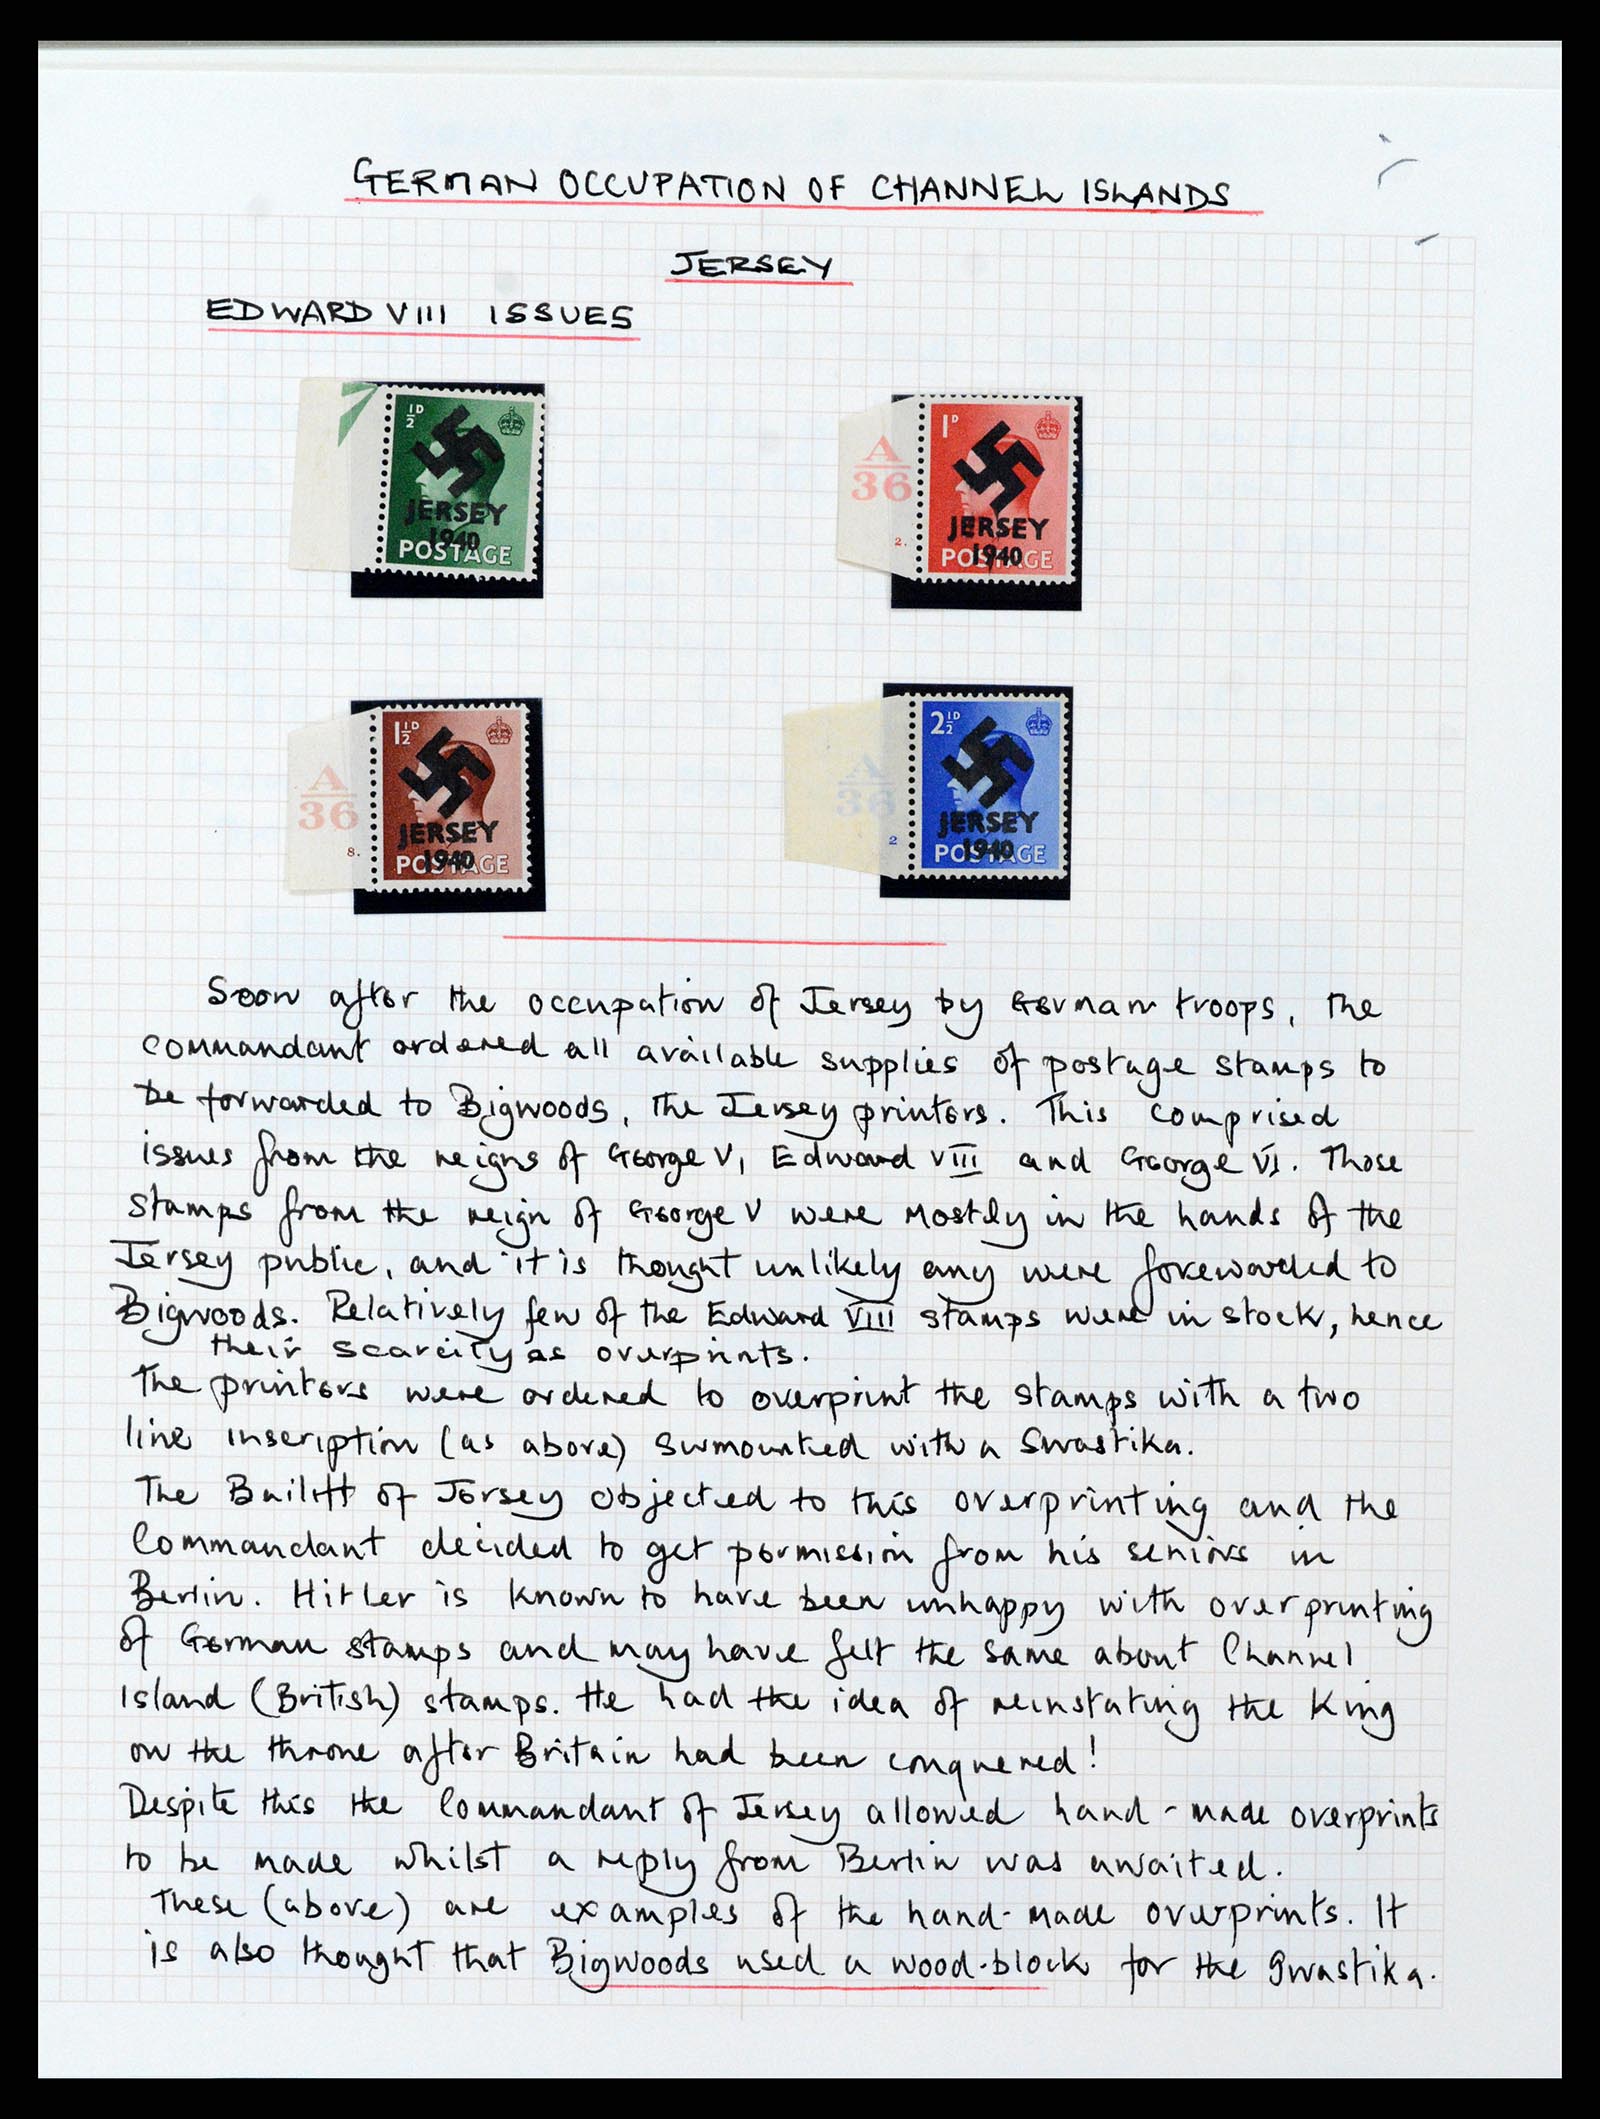 GERMAN OCCUPATION OF CHANNEL ISLANDS
JERSEY
EDWARD VIII ISSUES
½D
JERSEY
1940
POSTAGE
A
36
2.
1D
JERSEY
1940
POSTAGE
A
36
8.
1½D
JERSEY
1940
POSTAGE
A
36
2
2½D
JERSEY
1940
POSTAGE
Soon after the occupation of Jersey by German troops, the
commandant ordered all available supplies of postage stamps to
be forwarded to Bigwoods, the Jersey printers. This comprised
issues from the reigns of George V, Edward VIII and George VI. Those
stamps from the reign of George V were mostly in the hands of the
Jersey public, and it is thought unlikely any were forewarded to
Bigwoods. Relatively few of the Edward VIII stamps were in stock, hence
their scarcity as overprints.
The printers were ordered to overprint the stamps with a two
line inscription (as above) surmounted with a Swastika.
The Bailiff of Jersey objected to this overprinting and the
Commandant decided to get permission from his seniors in
Berlin. Hitler is known to have been unhappy with overprinting
of German stamps and may have felt the same about Channel
Island (British) stamps. He had the idea of reinstating the King
on the throne after Britain had been conquered!
Despite this the Commandant of Jersey allowed hand-made overprints
to be made whilst a reply from Berlin was awaited.
These (above) are examples of the hand-made overprints. It
is also thought that Bigwoods used a wood-block for the Swastika.